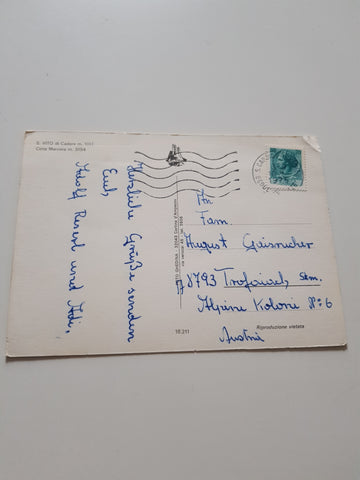 S. VITO di Cadore m. 1011
Cima Marcora m. 3154
Herzliche Grüße senden
Euch
Adolf Reserl und Heidi,
FOTO GHEDINA - 32043 Cortina d'Ampezzo
16.211
An
Fam.
August Geisrucher
A 8793 Trofaiach, Stm.
Alpine Kolonie Nº 6
Austria
Riproduzione vietata